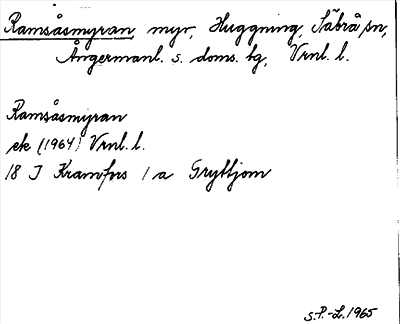 Ramsåsmyran, myr, Huggning, Säbrå sn,
Ångermanl. s. doms. tg, Vrnl. l.
Ramsåsmyran
ek (1964) Vrnl. l.
18 I Kramfors 1 a Gryttjom
S.P.-L. 1965